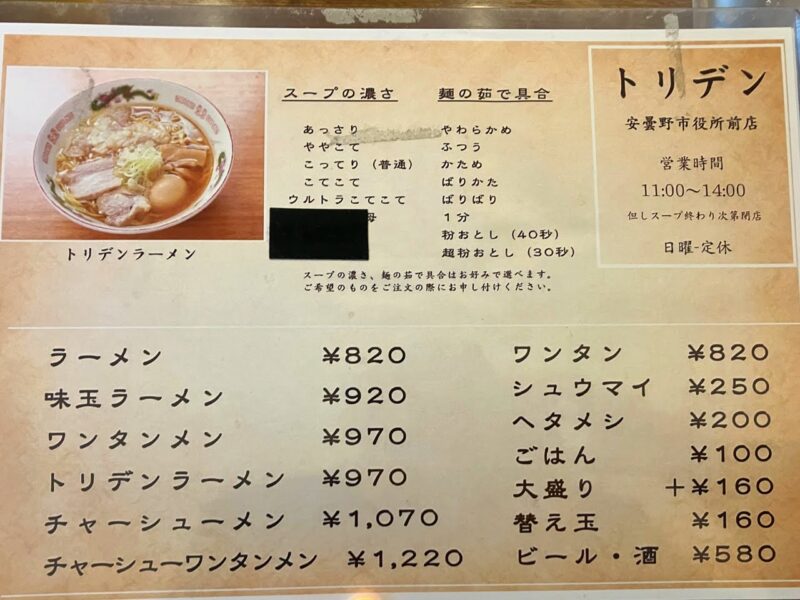 トリデンラーメン
スープの濃さ
あっさり
ややこて
こってり（普通）
こてこて
ウルトラこてこて
母
麺の茹で具合
やわらかめ
ふつう
かため
ばりかた
ばりばり
1分
粉おとし（40秒）
超粉おとし（30秒）
スープの濃さ、麺の茹で具合はお好みで選べます。
ご希望のものをご注文の際にお申し付けください。
トリデン
安曇野市役所前店
営業時間
11:00〜14:00
但しスープ終わり次第閉店
日曜-定休
ラーメン ¥820
味玉ラーメン ¥920
ワンタンメン ¥970
トリデンラーメン ¥970
チャーシューメン ¥1,070
チャーシューワンタンメン ¥1,220
ワンタン ¥820
シュウマイ ¥250
ヘタメシ ¥200
ごはん ¥100
大盛り +¥160
替え玉 ¥160
ビール・酒 ¥580